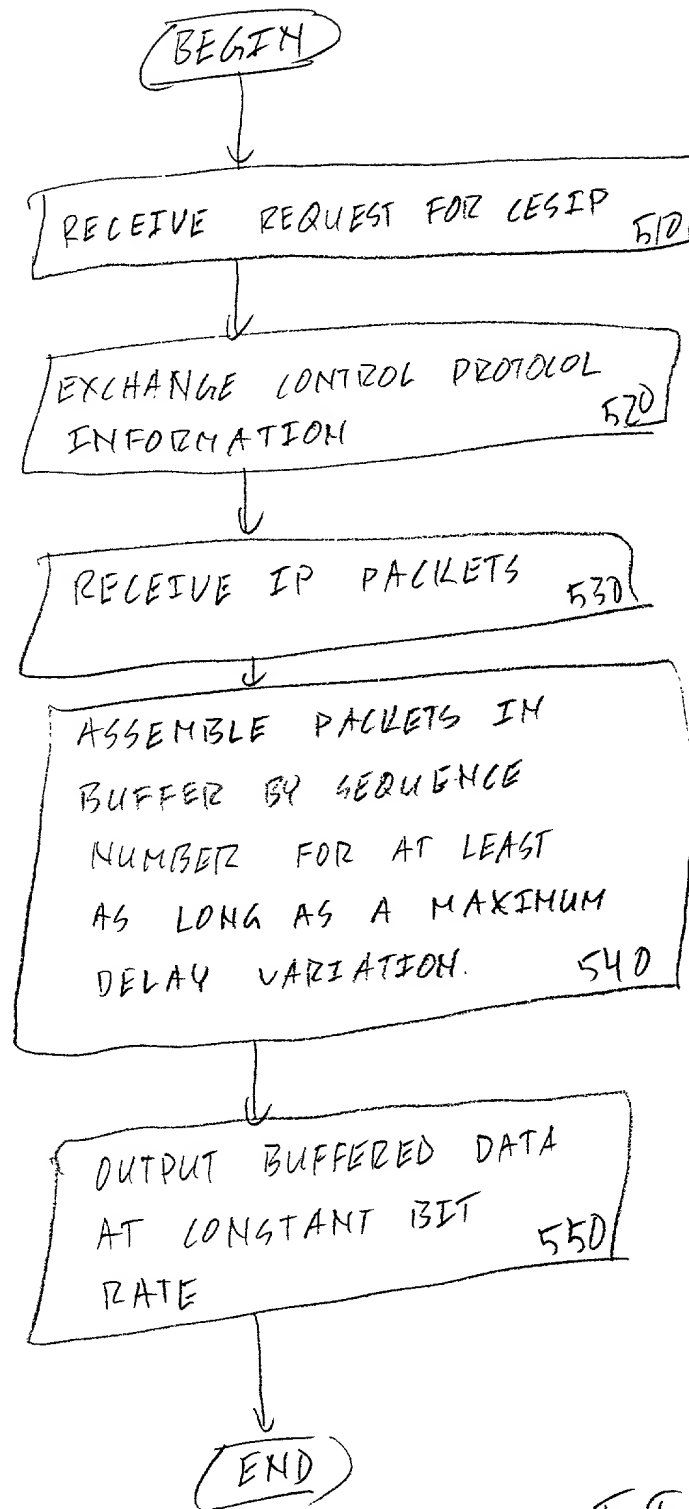 BEGIN
RECEIVE REQUEST FOR CESIP 510
EXCHANGE CONTROL PROTOCOL
INFORMATION 520
RECEIVE IP PACKETS 530
ASSEMBLE PACKETS IN
BUFFER BY SEQUENCE
NUMBER FOR AT LEAST
AS LONG AS A MAXIMUM
DELAY VARIATION. 540
OUTPUT BUFFERED DATA
AT CONSTANT BIT
RATE 550
END